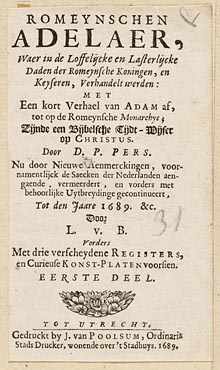 ROMEYNSCHEN
ADELAER,
Waer in de Loffelijcke en Lasterlijcke
Daden der Romeynsche Koningen, en
Keyseren, Verhandelt werden:
MET
Een kort Verhael van ADAM af,
tot op de Romeynsche Monarchye,
Zijnde een Bybelsche Tijdt-Wijser
op CHRISTUS.
Door D. P. PERS.
Nu door Nieuwe Aenmerckingen, voor-
namentlijck de Saecken der Nederlanden aen-
gaende, vermeerdert, en vorders met
behoorlijke Uytbreydinge gecontinueert,
Tot den Jaare 1689. &c.
Door
L. v. B.
Vorders
Met drie verscheydene REGISTERS,
en Curieuse KONST-PLATEN voorsien.
EERSTE DEEL.
31
TOT UTRECHT,
Gedruckt by J. van POOLSUM, Ordinaris
Stads Drucker, wonende over 't Stadhuys. 1689.